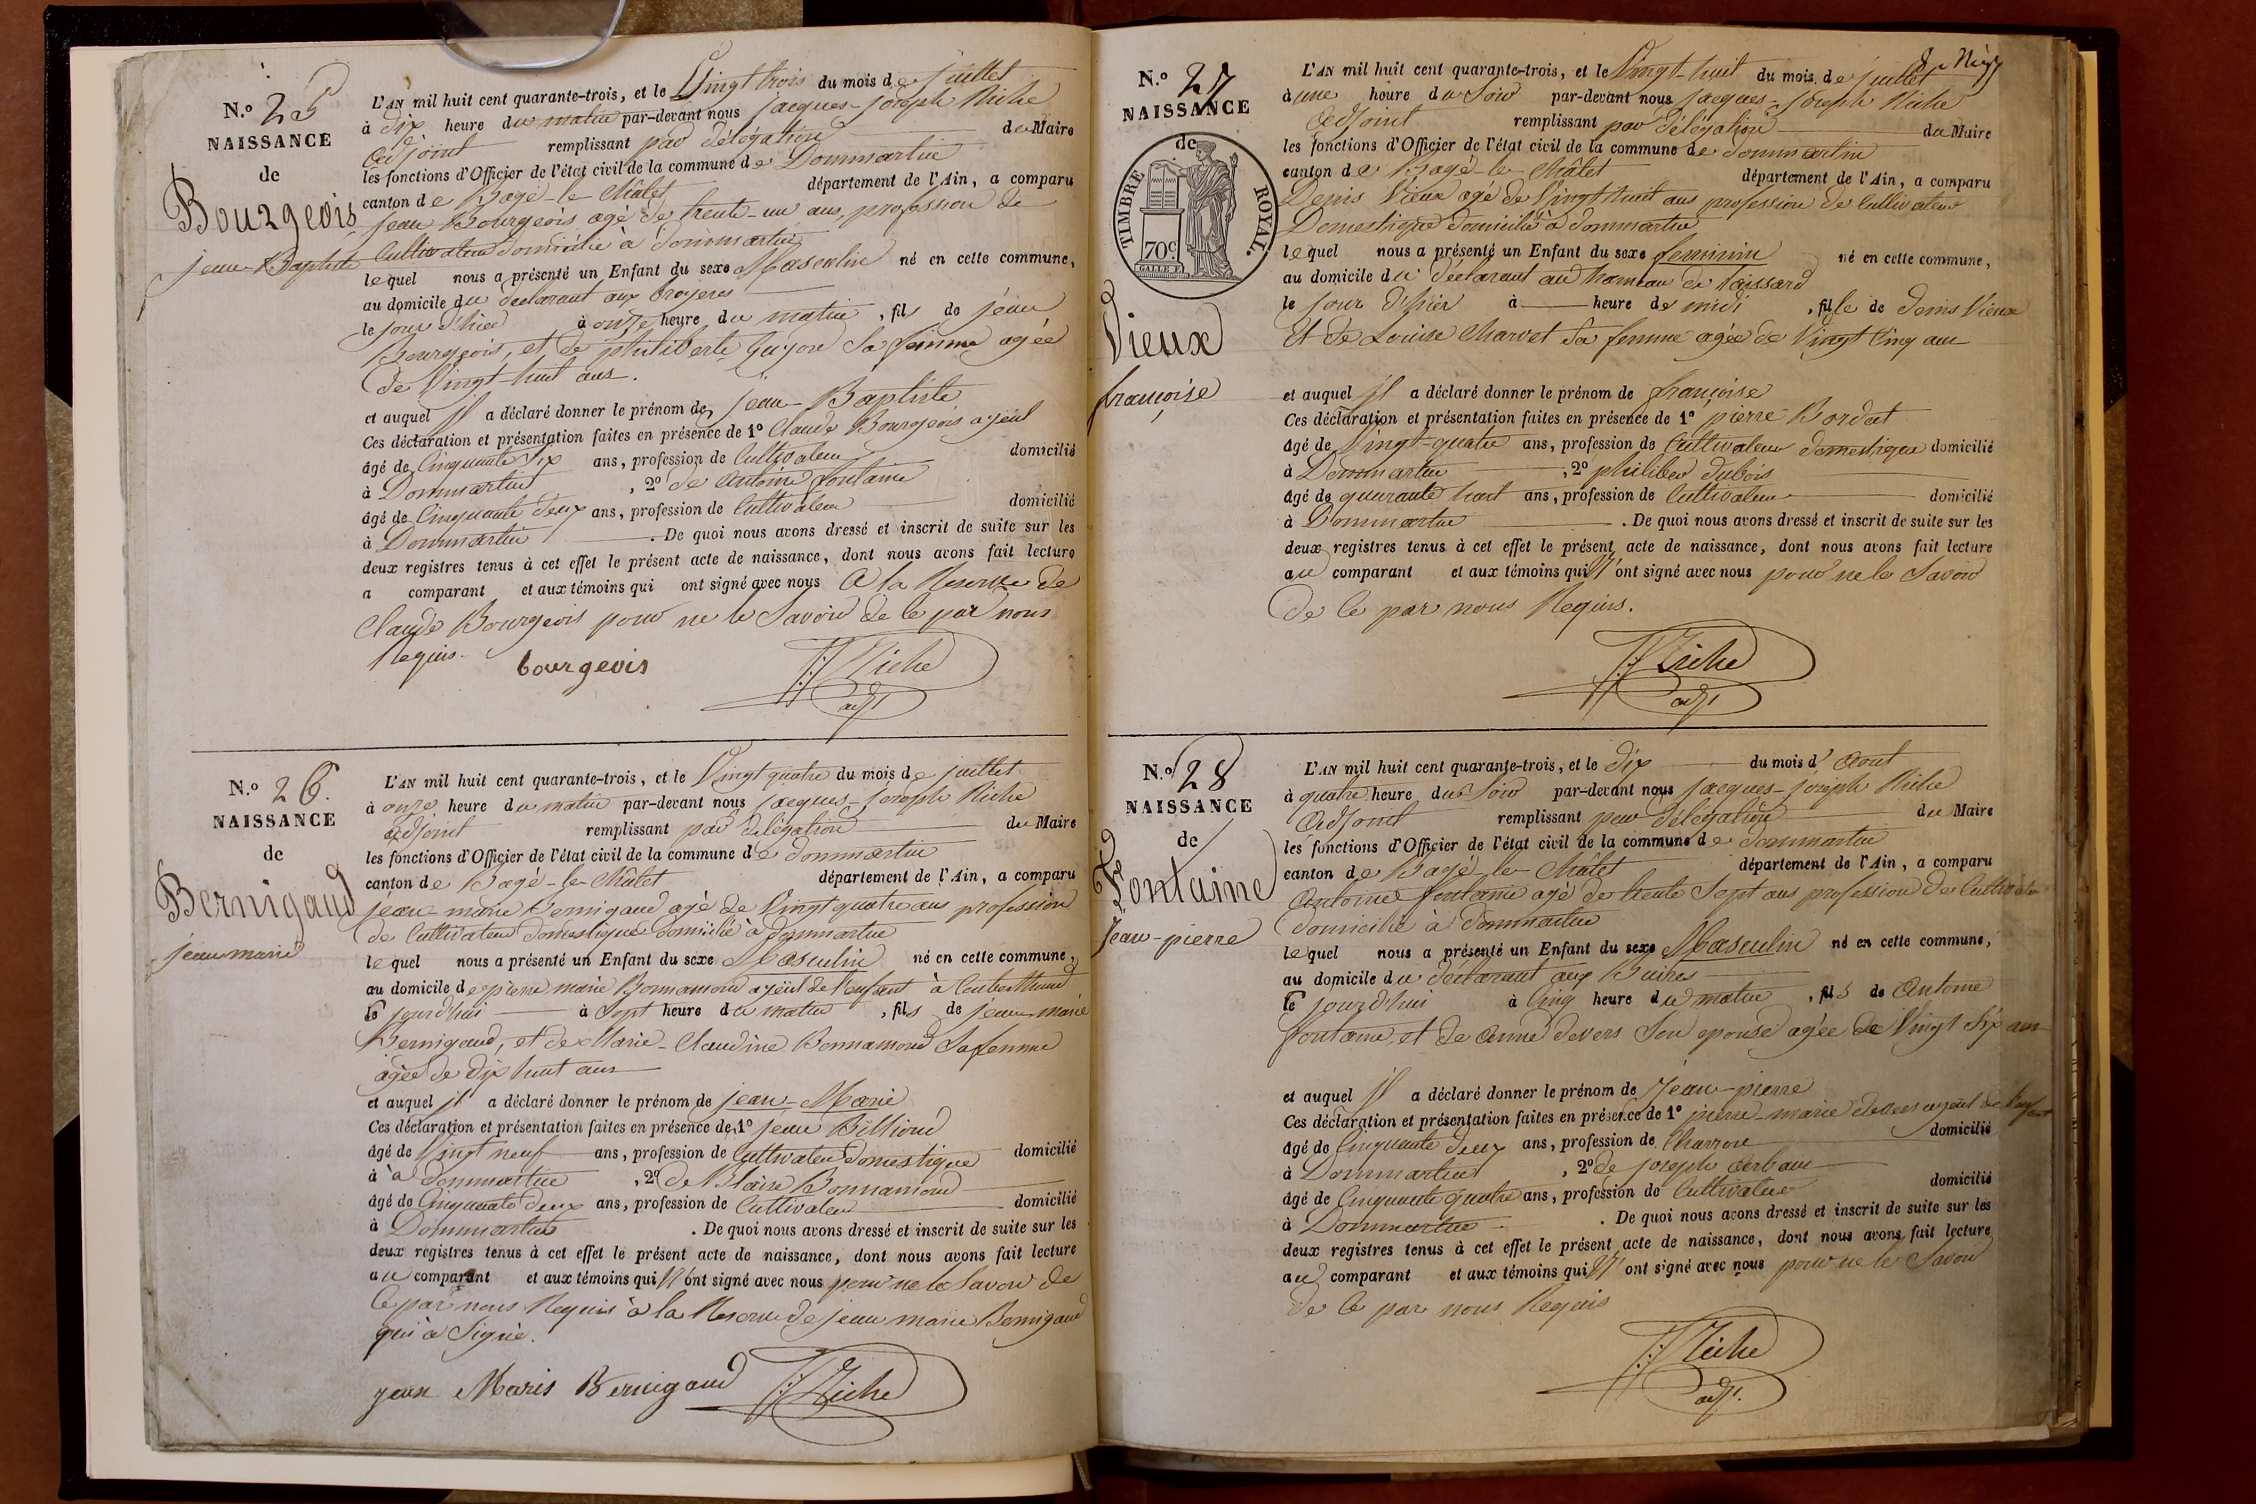 N.º 25
NAISSANCE
de
Bourgeois
jean-Baptiste
L'AN mil huit cent quarante-trois, et le Vingt trois du mois de juillet
à dix heure du matin par-devant nous jacques-joseph Riche
adjoint remplissant par délégation du Maire
les fonctions d'Officier de l'état civil de la commune de Dommartin
canton de Bagé-le-Châtel département de l'Ain, a comparu
jean Bourgeois agé de trente-un ans, profession de
Cultivateur domicilié à dommartin
lequel nous a présenté un Enfant du sexe Masculin né en cette commune,
au domicile du déclarant aux broyeres
le jour d'hier à onze heure du matin, fils de jean
Bourgeois, et de philiberte Guyon Sa femme agée
de Vingt-huit ans.
et auquel il a déclaré donner le prénom de jean-Baptiste
Ces déclaration et présentation faites en présence de 1º Claude Bourgeois ayeul
âgé de Cinquante Six ans, profession de Cultivateur domicilié
à Dommartin, 2º de antoine fontaine
âgé de Cinquante deux ans, profession de Cultivateur domicilié
à Dommartin. De quoi nous avons dressé et inscrit de suite sur les
deux registres tenus à cet effet le présent acte de naissance, dont nous avons fait lecture
a comparant et aux témoins qui ont signé avec nous a la Reserve de
Claude Bourgeois pour ne le Savoir de le par nous
Requis.
bourgeois
JJ Riche
adj
N.º 26.
NAISSANCE
de
Bernigaud
jean marie
L'AN mil huit cent quarante-trois, et le Vingt quatre du mois de juillet
à onze heure du matin par-devant nous jacques-joseph Riche
adjoint remplissant par délégation du Maire
les fonctions d'Officier de l'état civil de la commune de dommartin
canton de Bagé-le-Châtel département de l'Ain, a comparu
jean-marie Bernigaud agé de Vingt quatre ans profession
de Cultivateur domestique domicilié à dommartin
lequel nous a présenté un Enfant du sexe Masculin né en cette commune,
au domicile de pierre marie Bonnamour ayeul de l'enfant à
le jourd'hui à Sept heure du matin, fils de jean marie
Bernigaud, et de Marie-Claudine Bonnamour Sa femme
agée de dix huit ans
et auquel il a déclaré donner le prénom de jean-Marie
Ces déclaration et présentation faites en présence de 1º jean Billioud
âgé de Vingt neuf ans, profession de Cultivateur domestique domicilié
à à dommartin, 2º de Blaise Bonnamour
âgé de Cinquante deux ans, profession de Cultivateur domicilié
à Dommartin. De quoi nous avons dressé et inscrit de suite sur les
deux registres tenus à cet effet le présent acte de naissance, dont nous avons fait lecture
au comparant et aux témoins qui n'ont signé avec nous pour ne le Savoir de
le par nous Requis à la Reserve de jean marie Bernigaud
qui à Signé.
jean Marie Bernigaud
JJ Riche
N.º 27
NAISSANCE
de
TIMBRE ROYAL.
70 C
Vieux
françoise
L'AN mil huit cent quarante-trois, et le Vingt-huit du mois de juillet
à une heure du Soir par-devant nous jacques-joseph Riche
adjoint remplissant par délégation du Maire
les fonctions d'Officier de l'état civil de la commune de dommartin
canton de Bagé-le-Châtel département de l'Ain, a comparu
Denis Vieux agé de Vingt huit ans profession de Cultivateur
Domestique domicilié à dommartin
lequel nous a présenté un Enfant du sexe feminin né en cette commune,
au domicile du déclarant au hameau de
le jour d'hier à heure de midi, fille de denis Vieux
Et de Louise Charvet Sa femme agée de Vingt Cinq ans
et auquel il a déclaré donner le prénom de françoise
Ces déclaration et présentation faites en présence de 1º pierre Bordat
âgé de Vingt-quatre ans, profession de Cultivateur domestique domicilié
à Dommartin, 2º philiber dubois
âgé de quarante huit ans, profession de Cultivateur domicilié
à Dommartin. De quoi nous avons dressé et inscrit de suite sur les
deux registres tenus à cet effet le présent acte de naissance, dont nous avons fait lecture
au comparant et aux témoins qui n'ont signé avec nous pour ne le Savoir
de le par nous Requis.
JJ Riche
adj
N.º 28
NAISSANCE
de
Fontaine
Jean-pierre
L'AN mil huit cent quarante-trois, et le dix du mois d'Aout
à quatre heure du Soir par-devant nous jacques-joseph Riche
adjoint remplissant par délégation du Maire
les fonctions d'Officier de l'état civil de la commune de dommartin
canton de Bagé-le-Châtel département de l'Ain, a comparu
Antoine fontaine agé de trente Sept ans profession de Cultivateur
domicilié à dommartin
lequel nous a présenté un Enfant du sexe Masculin né en cette commune,
au domicile du déclarant aux
le jourd'hui à Cinq heure du matin, fils de Antoine
fontaine, et de anne devers Son epouse agée de Vingt Six ans
et auquel il a déclaré donner le prénom de Jean-pierre
Ces déclaration et présentation faites en présence de 1º pierre-marie devers ayeul de l'enfant
âgé de Cinquante deux ans, profession de Charron domicilié
à Dommartin, 2º de joseph
âgé de Cinquante quatre ans, profession de Cultivateur domicilié
à Dommartin. De quoi nous avons dressé et inscrit de suite sur les
deux registres tenus à cet effet le présent acte de naissance, dont nous avons fait lecture
au comparant et aux témoins qui n'ont signé avec nous pour ne le Savoir
de le par nous Requis
JJ Riche
adj.